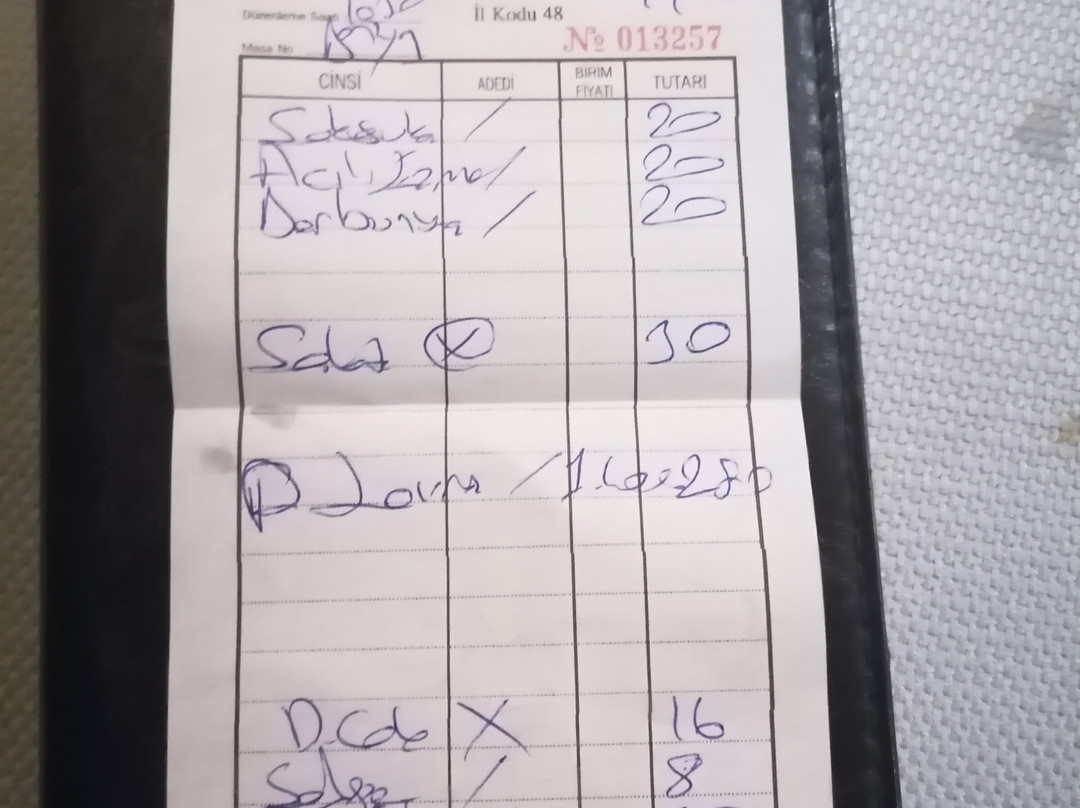 Düzenleme Saati
İl Kodu 48
Masa No
№ 013257
CİNSİ ADEDİ BİRİM FİYATI TUTARI
Şakşuka / 20
Acılı Ezme / 20
Barbunya / 20
Salat X 30
/ 280
D.Cola X 16
8